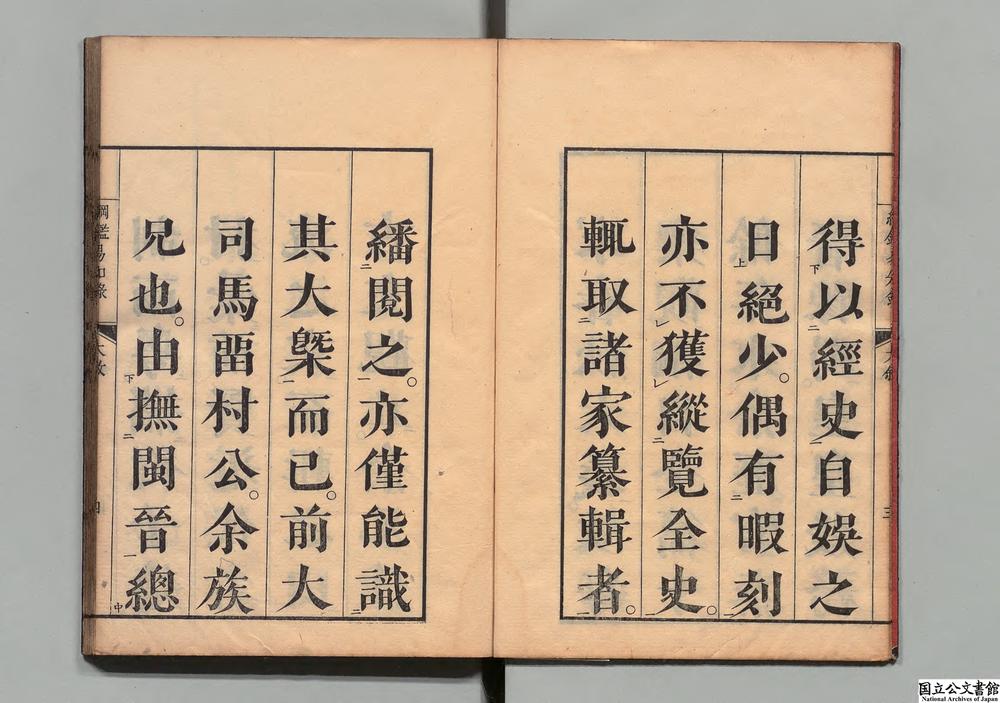 得以經史自娛之
日絕少。偶有暇刻
亦不獲縱覽全史。
輒取諸家纂輯者。
繙閱之。亦僅能識
其大槩而已。前大
司馬畱村公。余族
兄也。由撫閩晉總
綱鑑易知錄
四
三
国立公文書館
National Archives of Japan